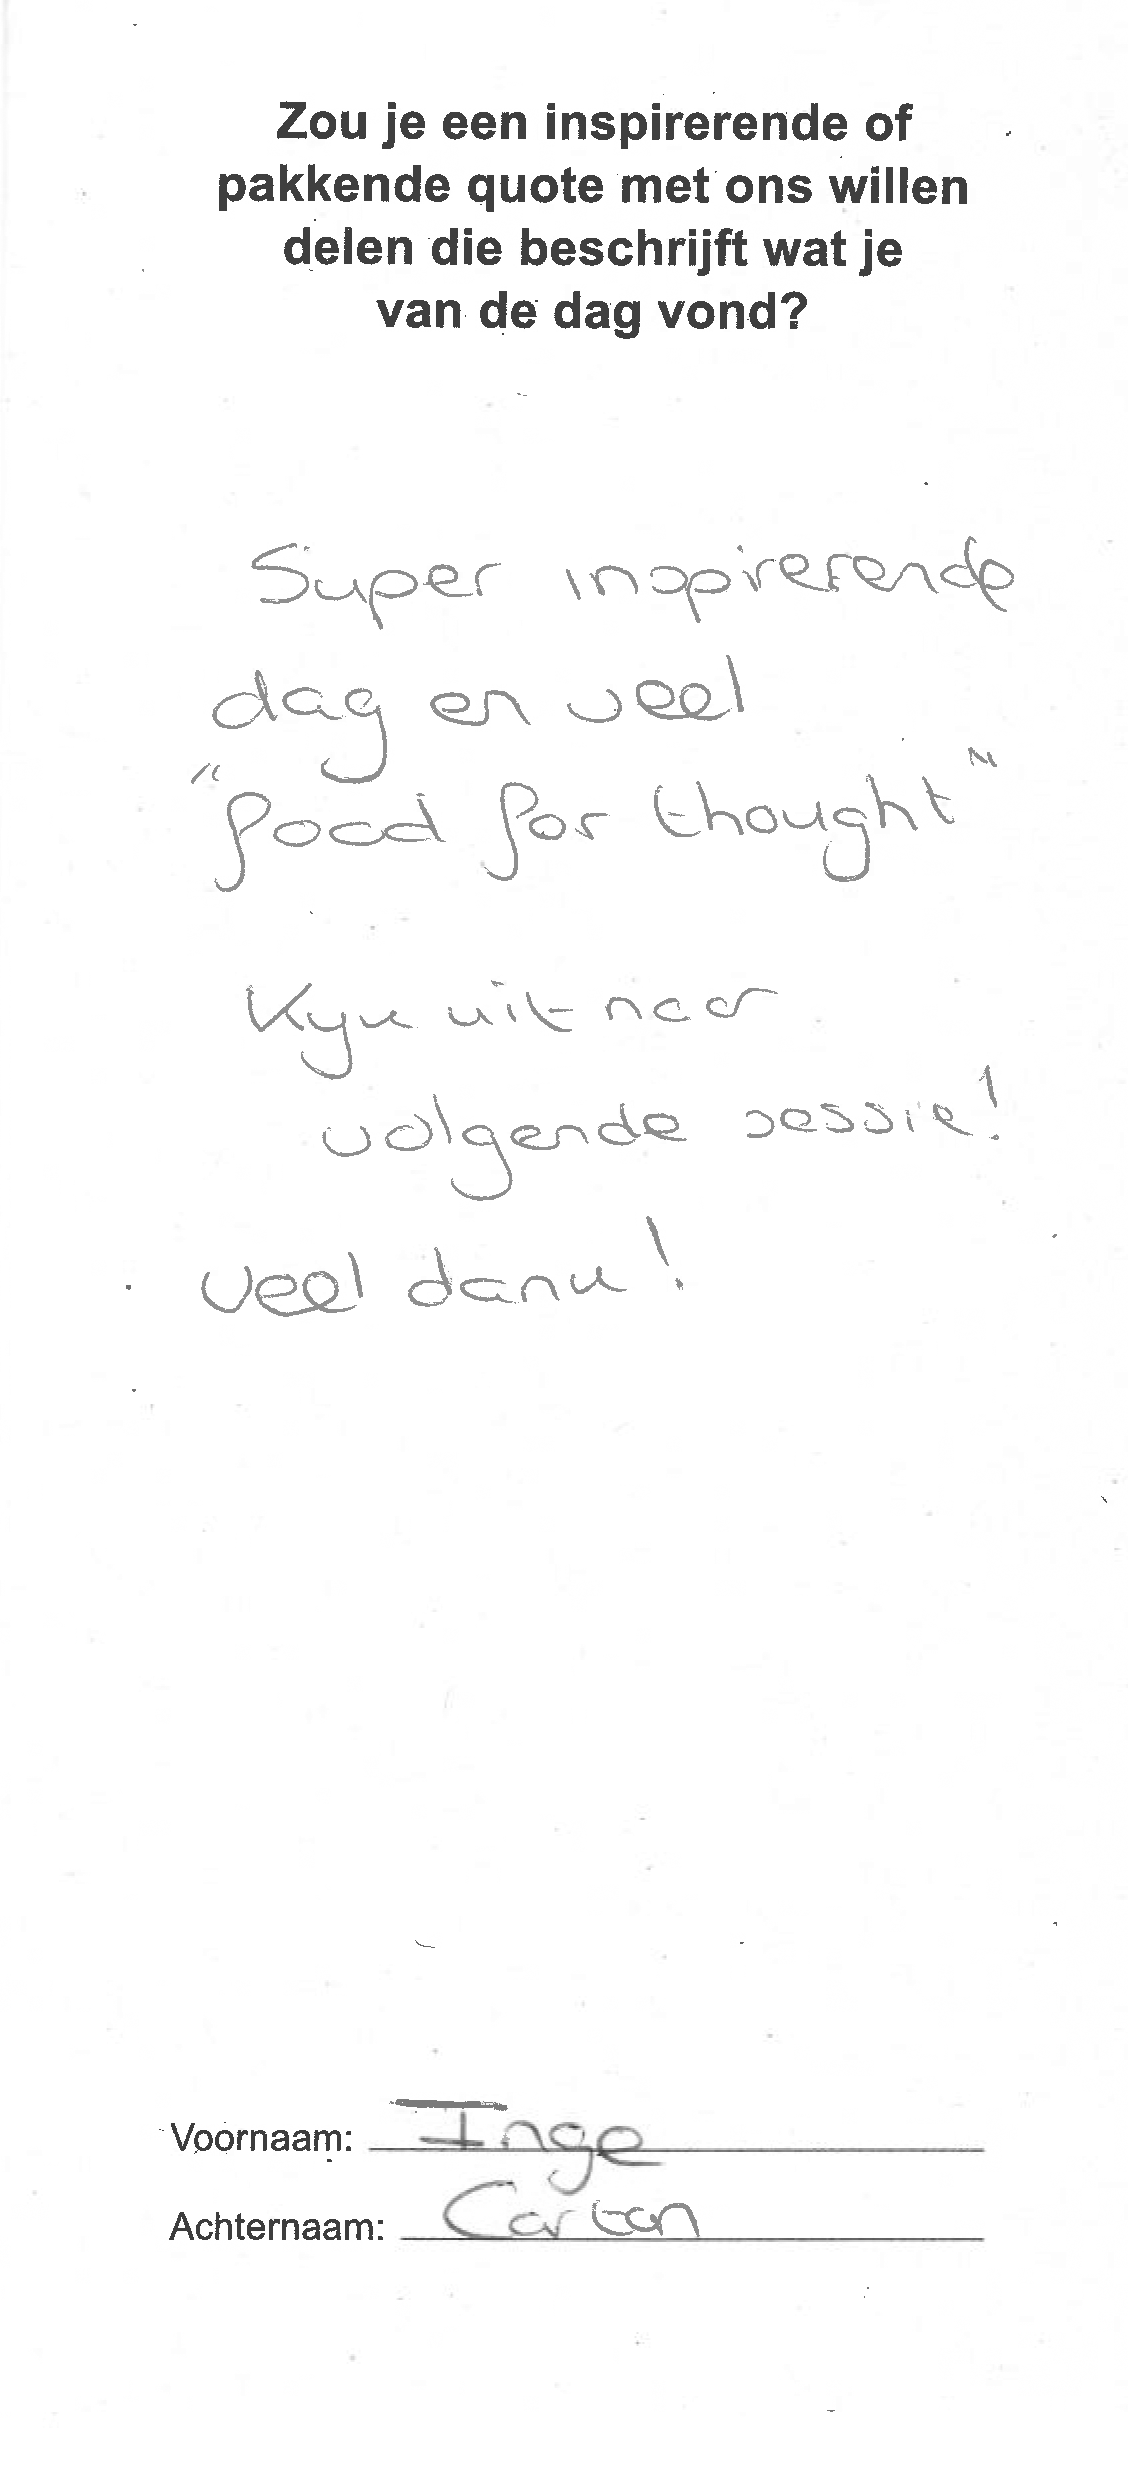 Zou je een inspirerende of
pakkende quote met ons willen
delen die beschrijft wat je
van de dag vond?
Super inspirerende
dag en veel
"food for thought"
Kijk uit naar
volgende sessie!
Veel dank!
Voornaam: Inge
Achternaam: Carton